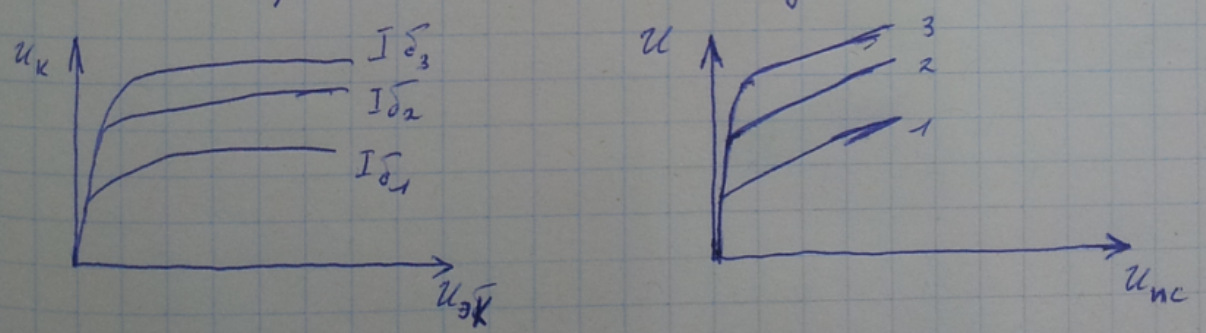 Uк
Iб3
Iб2
Iб1
Uэк
U
3
2
1
Uпс